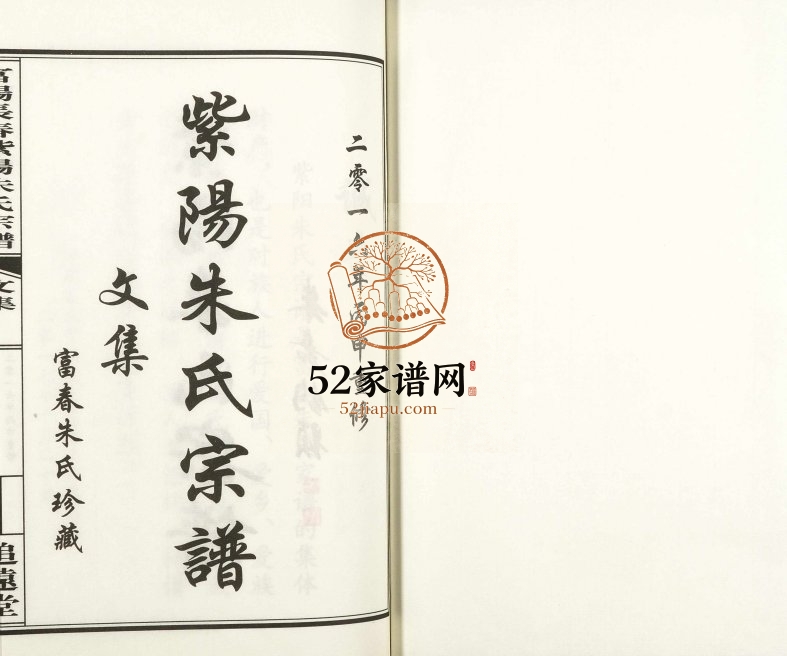 二零一六年丙申重修
紫陽朱氏宗譜
文集
富春朱氏珍藏
富陽長春紫陽朱氏宗譜
文集
追遠堂
52家谱网
52jiapu.com